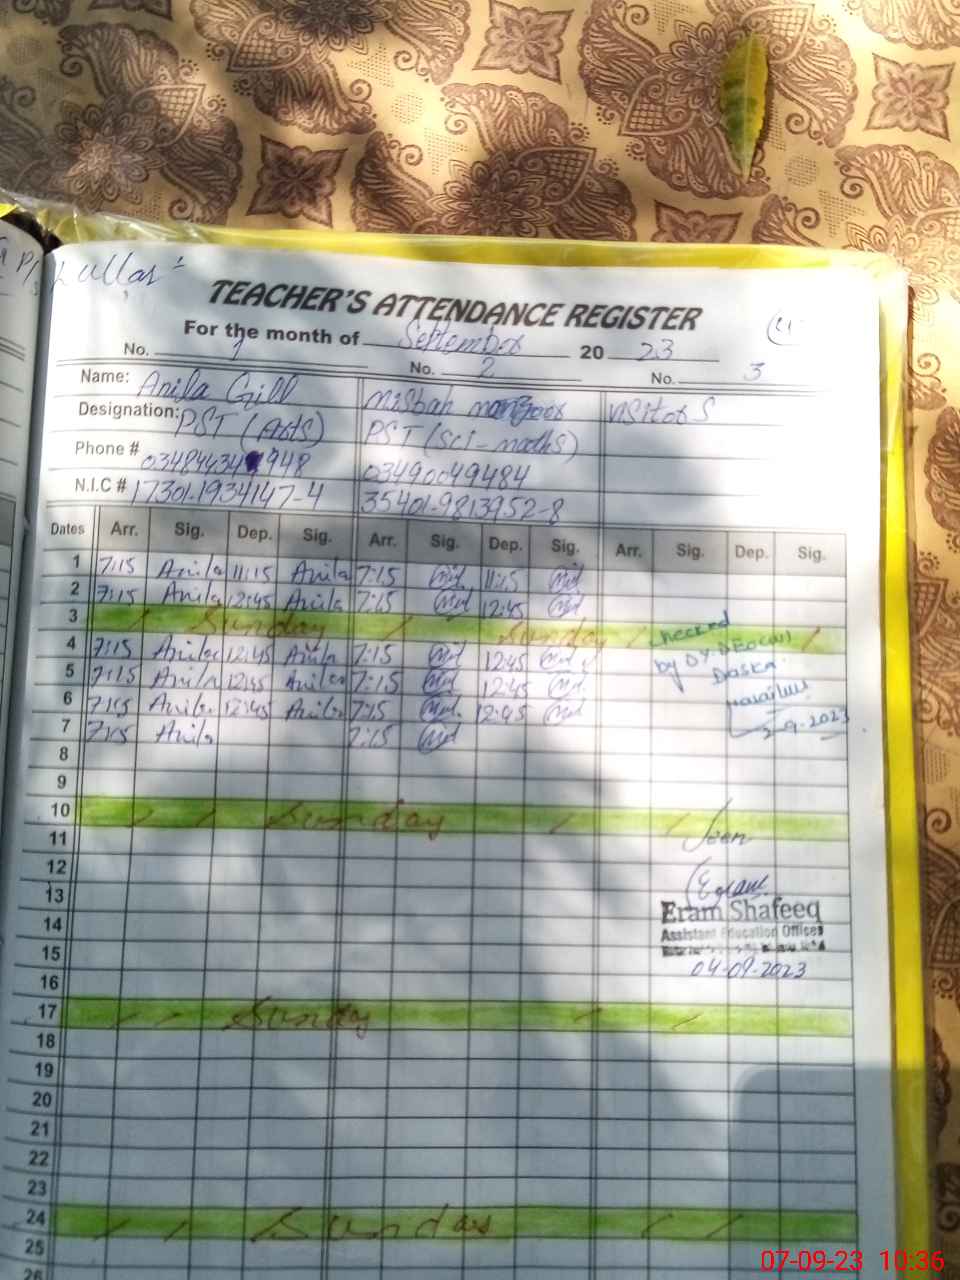 TEACHER'S ATTENDANCE REGISTER
For the month of September 20 23
No. 1 No. 2 No. 3
Name: Anila Gill Misbah
Designation: PST (Arts) PST (sci-maths)
Phone # 03490049484
N.I.C # 17301-1934147-4 35401-9813952-8
Dates Arr. Sig. Dep. Sig. Arr. Sig. Dep. Sig. Arr. Sig. Dep. Sig.
1 7:15 Anila 11:15 Anila 7:15 11:15
2 7:15 Anila 12:45 Anila 7:15 12:45
3 Sunday Sunday
checked
4 7:15 Anila 12:45 Anila 7:15 12:45
by Dy. DEO
Daska
5 7:15 Anila 12:45 Anila 7:15 12:45
6 7:15 Anila 12:45 Anila 7:15 12:45
7 7:15 Anila 7:15
-9-2023
8
9
10 Sunday
11 Seen
12
13
Eram Shafeeq
14
Assistant Education Officer
15
04-09-2023
16
17 Sunday
18
19
20
21
22
23
24 Sunday
25
26
07-09-23 10:36